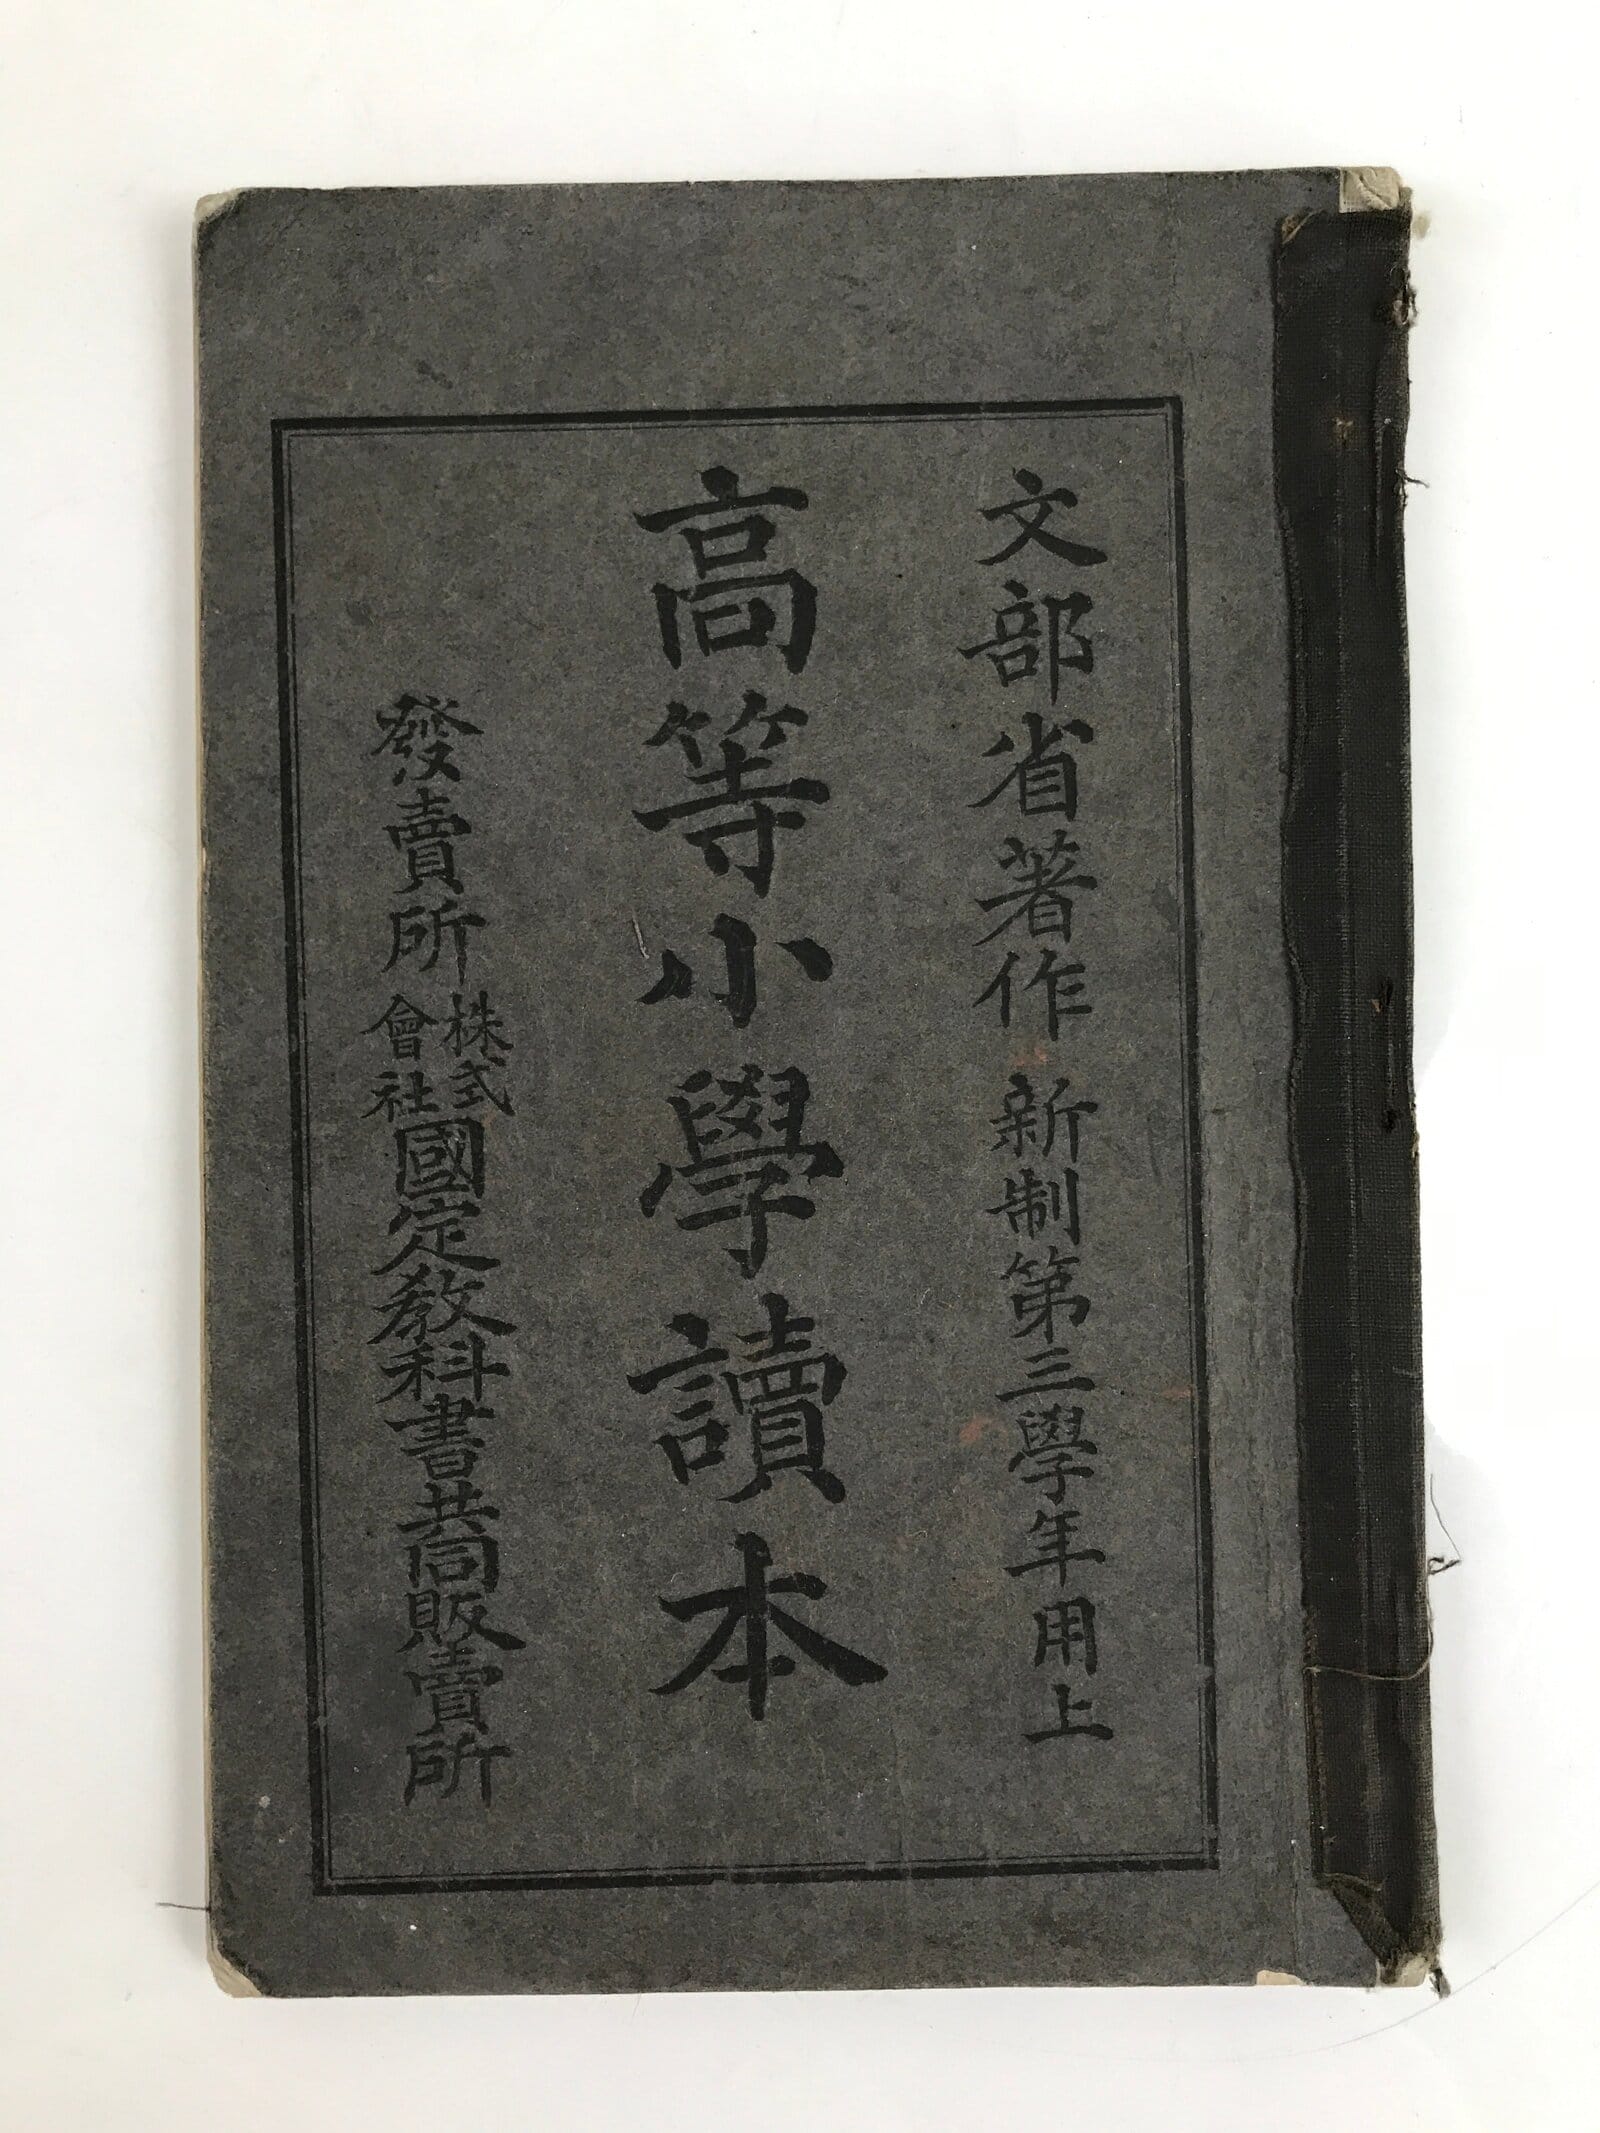 文部省著作 新制第三學年用上
高等小學讀本
發賣所 株式會社 國定教科書共同販賣所